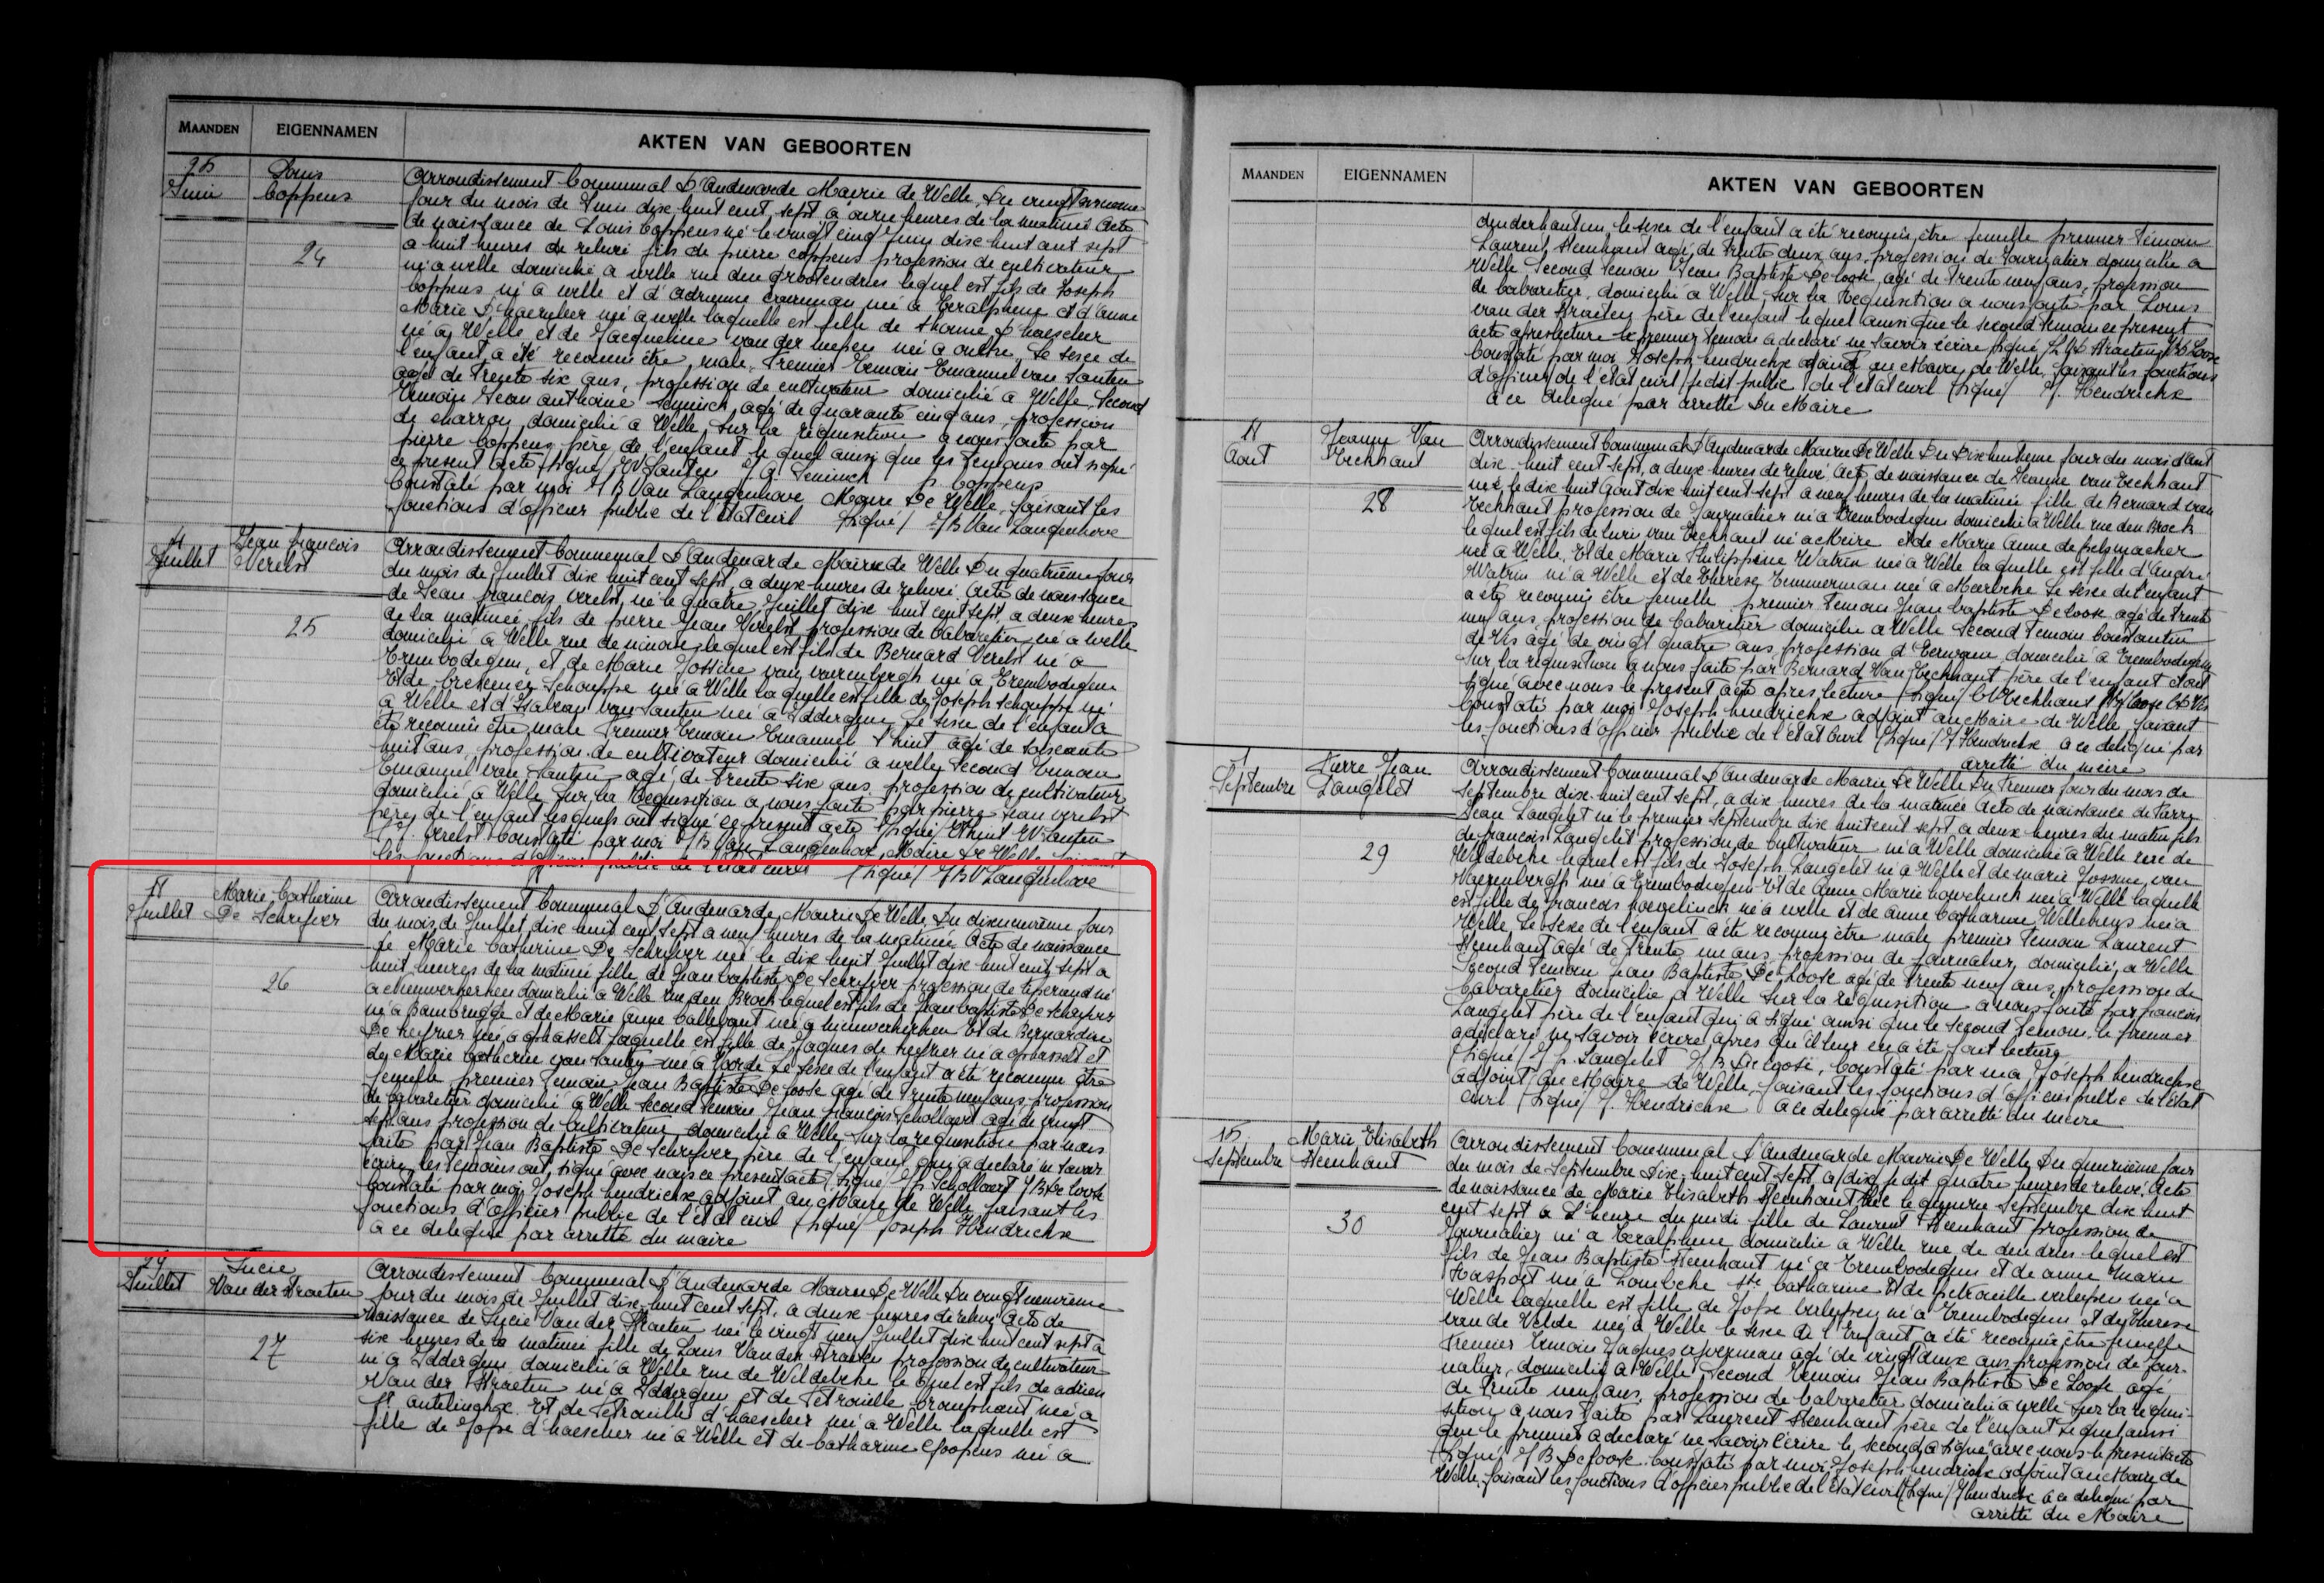 MAANDEN
EIGENNAMEN
AKTEN VAN GEBOORTEN
25
Juin
Louis
Coppens
24
Arrondissement Communal D'Audenarde Mairie de Welle, Du vingt
jour du mois de Juin dix huit cent sept à onze heures de la matinée Acte
de naissance de Louis Coppens né le vingt cinq Juin dix huit cent sept
a huit heures de relevé fils de pierre coppens profession de cultivateur
né a welle domicilié a welle rue den grootendries lequel est fils de Joseph
Coppens né a welle et d'Adrienne né a Teralphene et d'anne
Marie D'haeseleer né a welle laquelle est fille de D'haeseleer
né a Welle et de Jacqueline van der né a Le sexe de
l'enfant a été reconnu être male, Premier Temoin Emanuel van Santen
agé de trente six ans, profession de cultivateur domicilié a Welle, Second
Temoin Jean anthoine agé de quarante cinq ans, profession
de charron, domicilié a Welle, sur la réquisition a nous faite par
pierre Coppens père de l'enfant lequel ainsi que les temoins ont signé
ce present acte signé EV Santen J. A. P. Coppens
Constaté par moi J B Van Langenhove Maire De Welle, faisant les
fonctions d'officier public de l'état civil (signé) J B Van Langenhove
4
Juillet
Jean francois
Verelst
25
Arrondissement Communal D'Audenarde Mairie de Welle Du quatrième jour
du mois de Juillet dix huit cent sept, a deux heures de relevé. Acte de naissance
de Jean francois Verelst, né le quatre Juillet dix huit cent sept, a deux heures
de la matinée, fils de pierre Jean Verelst profession de Cabaretier né a welle
domicilié a Welle rue de lequel est fils de Bernard Verelst né a
Erembodegem, et de Marie Jossine van varenbergh né a Erembodegem
Et de Schouppe né a Welle laquelle est fille de Joseph Schouppe né
a Welle et d'Isabeau van Santen né a Iddergem Le sexe de l'enfant a
été reconnu être male Premier Temoin Emanuel D'hint agé de soixante
huit ans, profession de cultivateur domicilié a welle Second Temoin
Emanuel van Santen agé de trente six ans profession de cultivateur
domicilié a Welle, sur la Requisition a nous faite par pierre Jean Verelst
père de l'enfant lesquels ont signé ce present acte (signé) E d'hint EV Santen
P. J. Verelst Constaté par moi J B Van Langenhove Maire De Welle faisant
les fonctions d'officier public de l'état civil (signé) J B V Langenhove
18
Juillet
Marie Catherine
De Schryver
26
Arrondissement Communal D'Audenarde, Mairie De Welle, Du dixneuvième jour
du mois de Juillet dix huit cent sept a neuf heures de la matinée Acte de naissance
de Marie Catherine De Schryver né le dix huit Juillet dix huit cent sept a
huit heures de la matinée fille de Jean baptiste De Schryver profession de tisserand né
a nieuwerkerken domicilié a Welle rue den Broek lequel est fils de Jean baptiste De Schryver
né a Bambrugge et de Marie anne Callebaut né a nieuwerkerken Et de Bernardine
De heyver né a ophasselt laquelle est fille de Jaques de heyver né a ophasselt et
de Marie Catherine van Santen né a Voorde Le sexe de l'enfant a été reconnu être
femelle, premier Temoin Jean Baptiste De Loose agé de trente neuf ans, profession
de Cabaretier domicilié a Welle Second Temoin Jean francois Schollaert agé de vingt
sept ans profession de Cultivateur domicilié a Welle, sur la requisition par nous
faite par Jean Baptiste De Schryver, père de l'enfant, qui a declaré ne savoir
écrire, les temoins ont signé avec nous ce present acte (signé) J f Schollaert J B De Loose
Constaté par moi, Joseph hendrickx adjoint au Maire De Welle faisant les
fonctions d'officier public de l'état civil (signé) Joseph Hendrickx
a ce delegué par arretté du maire
29
Juillet
Lucie
Van der Straeten
27
Arrondissement Communal D'Audenarde Mairie De Welle Du vingt neuvième
jour du mois de Juillet dix-huit cent sept, a deux heures de relevé Acte de
Naissance de Lucie Van der Straeten né le vingt neuf Juillet dix huit cent sept a
six heures de la matinée fille de Louis Van der Straeten profession de cultivateur
né a Iddergem domicilié a Welle rue de Wildebeke lequel est fils de adrien
Van der Straeten né a Iddergem et de Petronille né a
St antelinghx Et de Petronille d'haeseleer né a Welle laquelle est
fille de Josse d'haeseleer né a Welle et de Catharine né a
MAANDEN
EIGENNAMEN
AKTEN VAN GEBOORTEN
denderhautem, le sexe de l'enfant a été reconnu être femelle premier Témoin
Laurent Steenhaut agé de trente deux ans, profession de Journalier domicilié a
Welle Second Temoin Jean Baptiste De Loose, agé de trente neuf ans, profession
de Cabaretier, domicilié a Welle, sur la Requisition a nous faite par Louis
van der Straeten père de l'enfant lequel ainsi que le second temoin ce present
acte apres lecture le premier temoin a declaré ne savoir écrire signé L. Vd Straeten J B D Loose
Constaté par moi Joseph hendrickx adjoint au Maire, de Welle, faisant les fonctions
d'officier de l'état civil se dit public de l'état civil (signé) J. Hendrickx
a ce delegué par arretté Du Maire
18
Aout
Jeanne Van
Eeckhaut
28
Arrondissement Communal D'Audenarde Mairie De Welle Du Dixhuitieme jour du mois d'aout
dix-huit cent sept, a deux heures de relevé Acte de naissance de Jeanne van Eeckhaut
né le dix huit Aout dix huit cent sept a neuf heures de la matinée fille de Bernard van
Eeckhaut profession de Journalier né a Erembodegem domicilié a Welle rue den Broek
lequel est fils de van Eeckhaut né a Meire et de Marie Anne de pelsmacker
né a Welle, Et de Marie Philippine Watrin né a Welle laquelle est fille d'André
Watrin né a Welle et de Therese Timmerman né a Meerbeke Le sexe de l'enfant
a été reconnu être femelle premier temoin Jean baptiste De Loose agé de trente
neuf ans, profession de Cabaretier domicilié a Welle Second Temoin Constantin
de Vis agé de vingt quatre ans, profession d'Ecrivain, domicilié a Erembodegem
Sur la requisition a nous faite par Bernard Van Eeckhaut père de l'enfant et ont
signé avec nous le present acte apres lecture (signé) B V Eeckhaut J B D Loose C. D Vis
Constaté par moi Joseph hendrickx adjoint au Maire de Welle faisant
les fonctions d'officier public de l'état Civil (signé) J Hendrickx a ce delegué par
arretté du maire
1
Septembre
Pierre Jean
Langelet
29
Arrondissement Communal D'Audenarde Mairie De Welle Du Premier Jour du mois de
Septembre dix-huit cent sept, a dix heures de la matinée Acte de naissance de Pierre
Jean Langelet né le premier septembre dix huit cent sept a deux heures du matin fils
de francois Langelet profession de Cultivateur né a Welle domicilié a Welle rue de
Wildebeke lequel est fils de Joseph Langelet né a Welle et de marie Jossine van
Vaerenbergh né a Erembodegem Et de Anne Marie né a Welle laquelle
est fille de francois né a welle et de anne Catharine né a
Welle, Le sexe de l'enfant a été reconnu être male, premier Temoin Laurent
Steenhaut agé de Trente un ans, profession de Journalier, domicilié, a Welle
Second Temoin Jean Baptiste De Loose agé de trente neuf ans, profession de
Cabaretier, domicilié a Welle sur la requisition a nous faite par francois
Langelet père de l'enfant qui a signé ainsi que le second temoin, le premier
a declaré ne savoir écrire apres qu'il leur en a été fait lecture
(signé) f. Langelet J B De Loose, Constaté par moi Joseph hendrickx
adjoint au Maire de Welle, faisant les fonctions d'officier public de l'état
civil (signé) J. Hendrickx a ce delegué par arretté du maire
15
Septembre
Marie Elisabeth
Steenhaut
30
Arrondissement Communal D'Audenarde Mairie De Welle Du quinzième jour
du mois de Septembre Dix-huit cent sept, a dix, je dit quatre heures de relevé. Acte
de naissance de Marie Elisabeth Steenhaut née le quinze Septembre dix huit
cent sept a L'heure du midi fille de Laurent Steenhaut profession de
Journalier né a Teralphene domicilié a Welle rue de dendries lequel est
fils de Jean Baptiste Steenhaut né a Erembodegem et de anne Marie
Haspoet né a Lombeke Ste Catharine Et de petronille verleysen né a
Welle laquelle est fille de Josse verleysen né a Erembodegem et de Therese
van de Velde né a Welle le sexe de l'Enfant a été reconnu être femelle
Premier Temoin Jaques agé de vingt deux ans profession de Jour-
nalier, domicilié a Welle, Second Temoin Jean Baptiste De Loose agé
de trente neuf ans, profession de Cabaretier, domicilié a welle sur la requi-
sition a nous faite par Laurent Steenhaut père de l'enfant lequel aussi
que le premier a declaré ne savoir écrire le second a signé avec nous le present acte
(signé) J B De Loose. Constaté par moi Joseph hendrickx adjoint au Maire de
Welle, faisant les fonctions d'officier public de l'état civil (signé) J hendrickx a ce delegué par
arretté du Maire